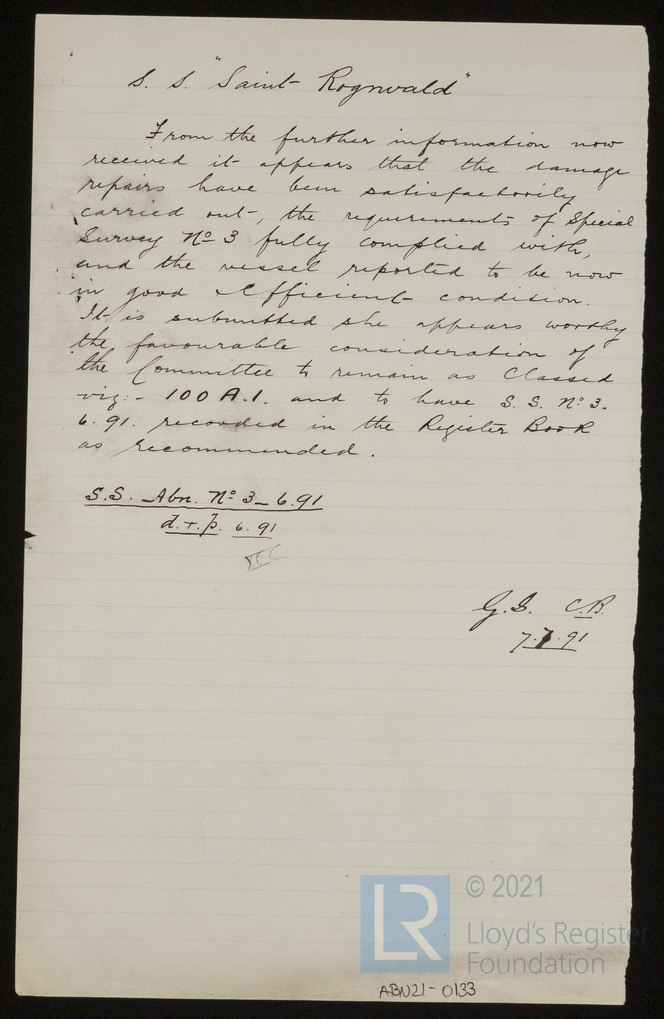 S. S. "Saint Rognvald"
From the further information now
received it appears that the damage
repairs have been satisfactorily
carried out, the requirements of Special
Survey No 3 fully complied with,
and the vessel reported to be now
in good & Efficient condition.
It is submitted she appears worthy
the favourable consideration of
the Committee to remain as Classed
viz:- 100 A.1. and to have S. S. No 3.
6.91. recorded in the Register Book
as recommended.
S.S. Abn. No 3-6.91
d.+p. 6.91
G.S. C.B.
7.7.91
LR
© 2021
Lloyd's Register
Foundation
ABN21-0133